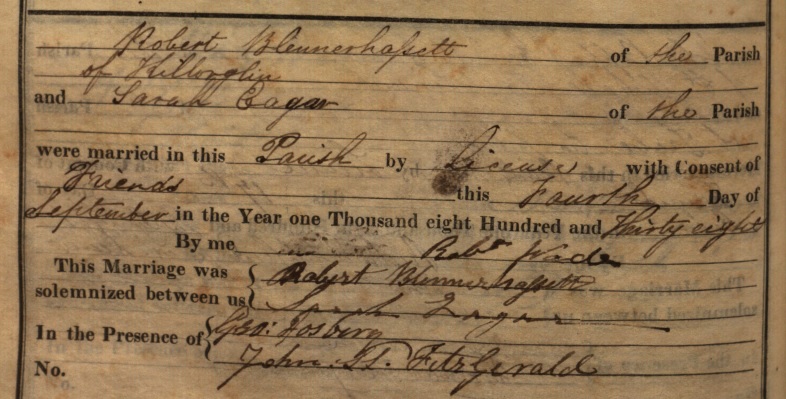 Robert Blennerhassett of the Parish
of Killorglin
and Sarah Eagar of the Parish
were married in this Parish by License with Consent of
Friends this Fourth Day of
September in the Year one Thousand eight Hundred and Thirty eight
By me Robt Wade
This Marriage was solemnized between us { Robert Blennerhassett
Sarah Eagar
In the Presence of { Geo: Fosbery
John H. FitzGerald
No.